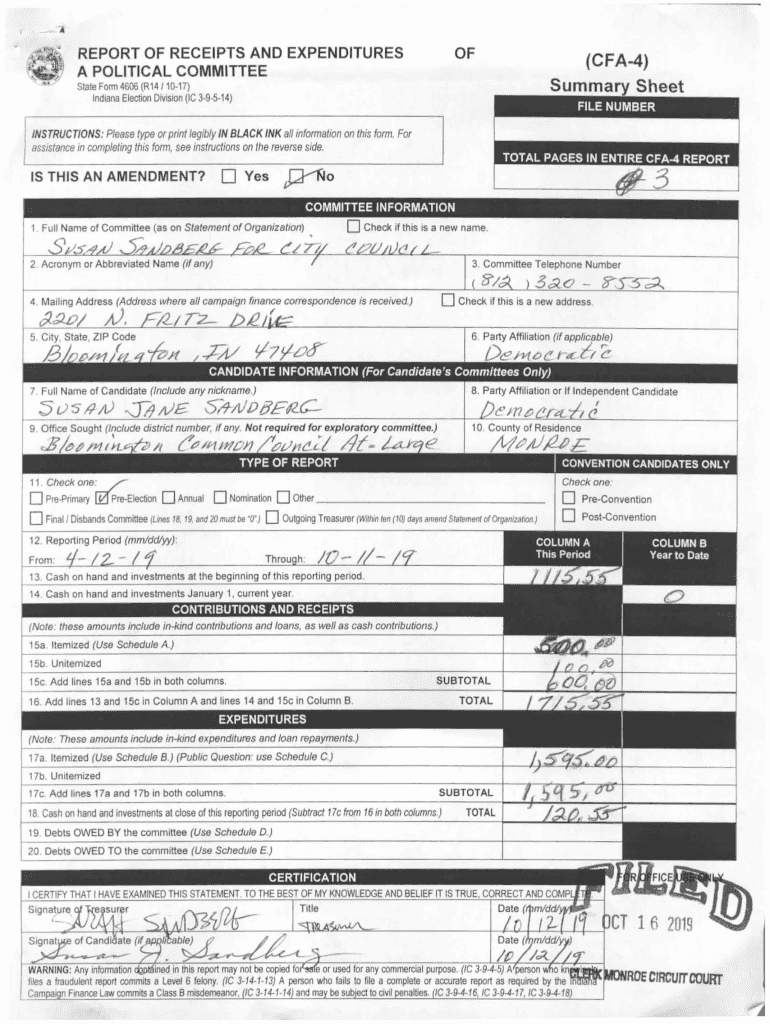 REPORT OF RECEIPTS AND EXPENDITURES OF
A POLITICAL COMMITTEE
State Form 4606 (R14 / 10-17)
Indiana Election Division (IC 3-9-5-14)
(CFA-4)
Summary Sheet
FILE NUMBER
INSTRUCTIONS: Please type or print legibly IN BLACK INK all information on this form. For
assistance in completing this form, see instructions on the reverse side.
TOTAL PAGES IN ENTIRE CFA-4 REPORT
3
IS THIS AN AMENDMENT? Yes No
COMMITTEE INFORMATION
1. Full Name of Committee (as on Statement of Organization) Check if this is a new name.
SUSAN SANDBERG FOR CITY COUNCIL
2. Acronym or Abbreviated Name (if any) 3. Committee Telephone Number
(812) 320-8552
4. Mailing Address (Address where all campaign finance correspondence is received.) Check if this is a new address.
2201 N. FRITZ DRIVE
5. City, State, ZIP Code 6. Party Affiliation (if applicable)
Bloomington, IN 47408 Democratic
CANDIDATE INFORMATION (For Candidate's Committees Only)
7. Full Name of Candidate (Include any nickname.) 8. Party Affiliation or If Independent Candidate
SUSAN JANE SANDBERG Democratic
9. Office Sought (Include district number, if any. Not required for exploratory committee.) 10. County of Residence
Bloomington Common Council At-Large MONROE
TYPE OF REPORT CONVENTION CANDIDATES ONLY
11. Check one: Check one:
Pre-Primary Pre-Election Annual Nomination Other Pre-Convention
Final / Disbands Committee (Lines 18, 19, and 20 must be "0".) Outgoing Treasurer (Within ten (10) days amend Statement of Organization.) Post-Convention
12. Reporting Period (mm/dd/yy): COLUMN A COLUMN B
From: 4-12-19 Through: 10-11-19 This Period Year to Date
13. Cash on hand and investments at the beginning of this reporting period. 1115.55
14. Cash on hand and investments January 1, current year. 0
CONTRIBUTIONS AND RECEIPTS
(Note: these amounts include in-kind contributions and loans, as well as cash contributions.)
15a. Itemized (Use Schedule A.) 500.00
15b. Unitemized 100.00
15c. Add lines 15a and 15b in both columns. SUBTOTAL 600.00
16. Add lines 13 and 15c in Column A and lines 14 and 15c in Column B. TOTAL 1715.55
EXPENDITURES
(Note: These amounts include in-kind expenditures and loan repayments.)
17a. Itemized (Use Schedule B.) (Public Question: use Schedule C.) 1,595.00
17b. Unitemized
17c. Add lines 17a and 17b in both columns. SUBTOTAL 1,595.00
18. Cash on hand and investments at close of this reporting period (Subtract 17c from 16 in both columns.) TOTAL 120.55
19. Debts OWED BY the committee (Use Schedule D.)
20. Debts OWED TO the committee (Use Schedule E.)
CERTIFICATION FOR OFFICE USE ONLY
I CERTIFY THAT I HAVE EXAMINED THIS STATEMENT. TO THE BEST OF MY KNOWLEDGE AND BELIEF IT IS TRUE, CORRECT AND COMPLETE.
FILED
Signature of Treasurer Title Date (mm/dd/yy)
SARAH SANDBERG TREASURER 10/12/19
OCT 16 2019
Signature of Candidate (if applicable) Date (mm/dd/yy)
Susan J. Sandberg 10/12/19
WARNING: Any information contained in this report may not be copied for sale or used for any commercial purpose. (IC 3-9-4-5) A person who knowingly
CLERK MONROE CIRCUIT COURT
files a fraudulent report commits a Level 6 felony. (IC 3-14-1-13) A person who fails to file a complete or accurate report as required by the Indiana
Campaign Finance Law commits a Class B misdemeanor, (IC 3-14-1-14) and may be subject to civil penalties. (IC 3-9-4-16, IC 3-9-4-17, IC 3-9-4-18)